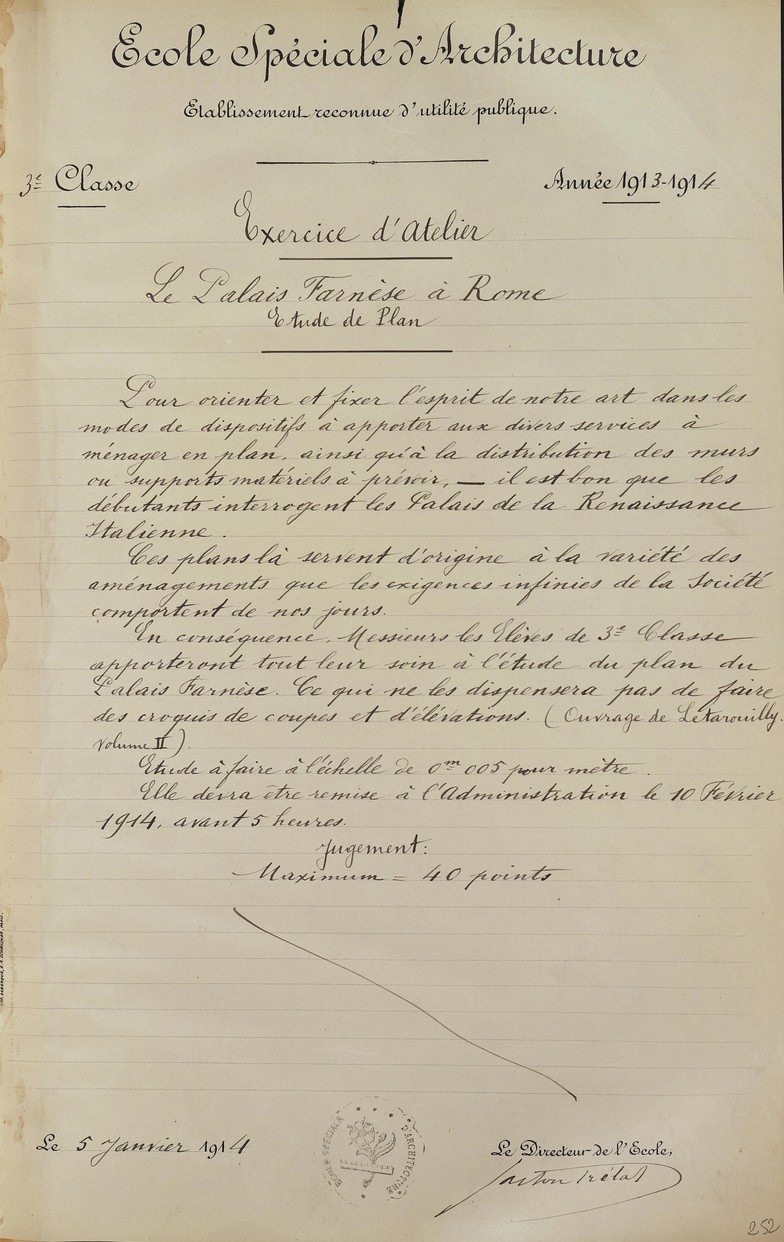 Ecole Spéciale d'Architecture
Etablissement reconnue d'utilité publique.
3e Classe
Année 1913-1914
Exercice d'Atelier
Le Palais Farnèse à Rome
Etude de Plan
Pour orienter et fixer l'esprit de notre art dans les
modes de dispositifs à apporter aux divers services à
ménager en plan, ainsi qu'à la distribution des murs
ou supports matériels à prévoir, — il est bon que les
débutants interrogent les Palais de la Renaissance
Italienne.
Ces plans là servent d'origine à la variété des
aménagements que les exigences infinies de la Société
comportent de nos jours.
En conséquence, Messieurs les Elèves de 3e Classe
apporteront tout leur soin à l'étude du plan du
Palais Farnèse. Ce qui ne les dispensera pas de faire
des croquis de coupes et d'élévations. (Ouvrage de Letarouilly.
volume II).
Etude à faire à l'échelle de 0m 005 pour mètre.
Elle devra être remise à l'Administration le 10 Février
1914, avant 5 heures.
Jugement:
Maximum = 40 points
Le 5 Janvier 1914
ECOLE SPÉCIALE D'ARCHITECTURE
Le Directeur de l'Ecole,
Gaston Trélat
252